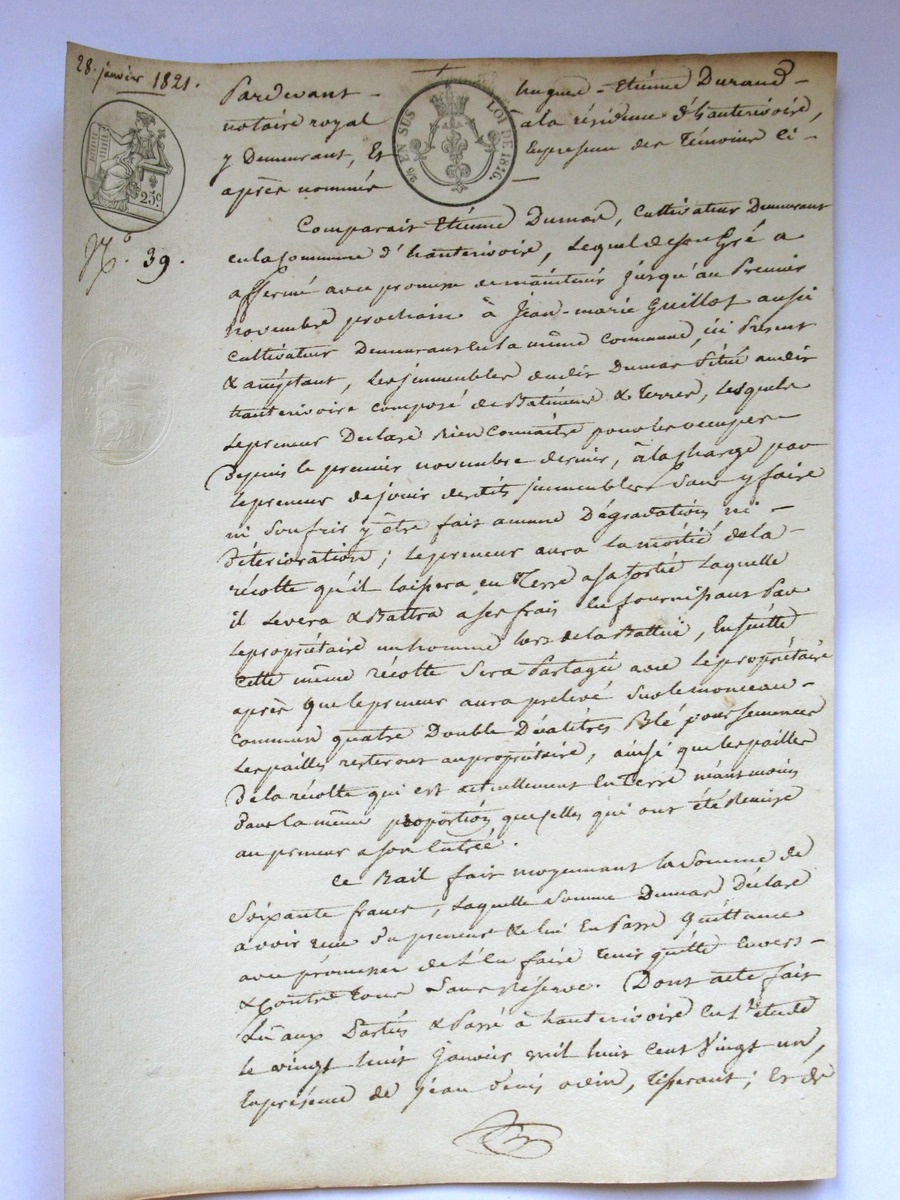 28. janvier 1821.
25c.
25 EN SUS LOI DE 1816.
N.o 39.
Pardevant hugues-Etiénne Durand
notaire royal à la résidence d'hauterivoire,
y Demeurant, Et En presence des Témoins ci-
après nommés
Comparait Etiénne Dumas, Cultivateur Demeurant
en la Commune d'hauterivoire, Lequel de son Gré a
affermé avec promesse de maintenir jusqu'au Premier
novembre prochain à Jean-marie Guillot aussi
Cultivateur Demeurant en la même Commune, ici Présent
& acéptant, Les jmmeubles dudit Dumas Situé audit
hauterivoire composé de Batiments & Terres, Lesquels
Le preneur Declare Bien Connaitre pour les occuper
Depuis le premier novembre dernier, à la charge par
le preneur de jouir desdits jmmeubles Sans y faire
ni Soufrir y être fait aucune Dégradation ni
Détérioration; Le preneur aura la moitié de la
récolte qu'il laissera en Terre a sa sortié Laquelle
il Levera & Battra a ses frais En fournissant Par
Le propriétaire un homme Lors de la Batture, Ensuitte
Cette même récolte Sera Partagée avec Le propriétaire
après que Le preneur aura prelevé Sur le monceau
Commun quatre Double Décalitres Blé pour Semences
Les pailles resteront au propriétaire, ainsi que Les pailles
De la récolte qui est actuellement En Terre néanmoins
Dans la même proportion que celles qui ont été Remise
au preneur a son Entrée.
Ce Bail fait moyennant la Somme de
Soixante francs, Laquelle Somme Dumas Déclare
avoir reçue du preneur & lui En Passe Quittance
avec promesse de L'en faire Tenir quitte Envers
& Contre Tous Sans Réserve. Dont acte fait
Lû aux Partiés & Passé à hauterivoire En L'étude
Le vingt huit Janvier mil huit Cent Vingt un,
En présence de jean Denis , tisserant; Et de